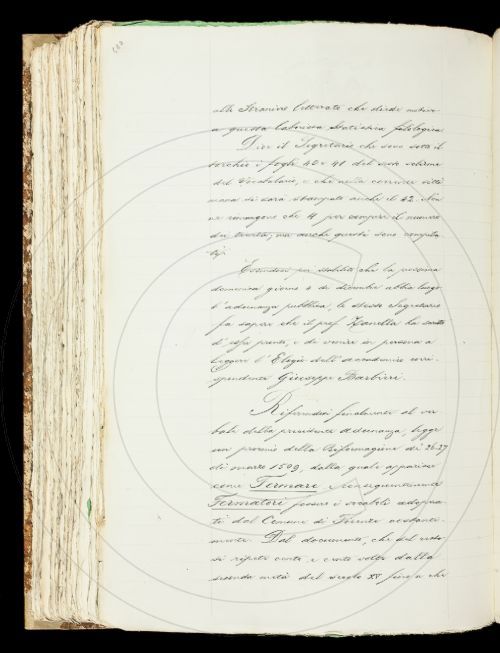 alle Strenne letterate che diede motivo
a questa laboriosa statistica filologica.
Dice il Segretario che sono sotto il
torchio i fogli 40 e 41 del sesto volume
del Vocabolario, e che nella corrente setti
mana si sarà stampato anche il 42. Non
ne rimangono che 4 per compire il numero
dei trenta; ma anche questi sono compos
ti.
Essendosi poi stabilito che la prossima
domenica giorno 4 di dicembre abbia luogo
l'adunanza pubblica, lo stesso Segretario
fa sapere che il prof. Zanella ha scritto
d'esser pronto, e di venire in persona a
leggere l'Elogio dell'accademico corri-
spondente Giuseppe Barbieri.
Riferendosi finalmente al ver
bale della precedente adunanza, legge
un proemio della Riformagione de' 26-27
di marzo 1509, dalla quale apparisce
come Fermare e conseguentemente
Fermatori fossero i vocaboli adopra
ti dal Comune di Firenze costante
mente. Dal documento, che del resto
si ripete cento e cento volte dalla
seconda metà del secolo XV fino a che